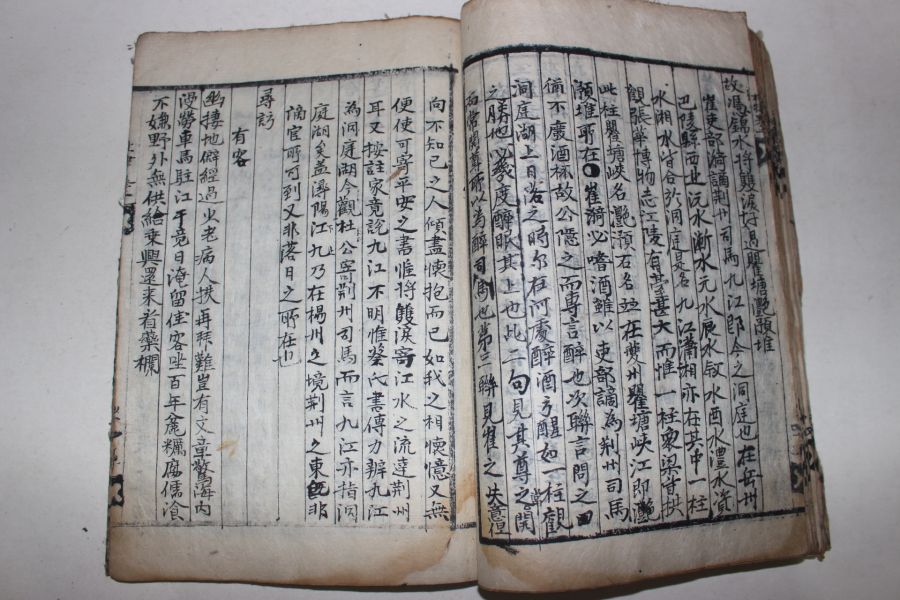 故憑錦水將雙淚好過瞿塘灧澦堆
崔吏部漪謫荊州司馬九江郎今之洞庭也在岳州
巴陵縣西北沅水漸水元水辰水叙水酉水澧水資
水湘水皆合於洞庭是名九江瀟湘亦在其中一柱
觀張華博物志江陵有臺甚大而惟一柱衆梁皆拱
此柱瞿塘峽名灧澦石名並在夔州瞿塘峽江即灧
澦堆所在 崔漪必嗜酒雖以吏部謫為荊州司馬
猶不廢酒杯故公憶之而專言醉也次聯言問之曰
洞庭湖上日落之時尔在何處醉酒方醒如一柱觀
之勝地必幾度醉眠其上也此二句見其尊之常開
而常開尊所以為醉司馬也第三聯見崔之失意但
向不知己之人傾盡懐抱而已如我之相懷憶又無
便使可寄平安之書惟將雙淚寄江水之流達荊州
耳又按註家竟說九江不明惟蔡氏書傳力辨九江
為洞庭湖今觀杜公寄荊州司馬而言九江亦指洞
庭湖矣盖潯陽江九乃在楊州之境荊州之東既非
謫官所可到又非落日之所在也
尋訪
有客
幽棲地僻經過少老病人扶再拜難豈有文章驚海內
漫勞車馬駐江干竟日淹留佳客坐百年麄糲腐儒飡
不嫌野外無供給乗興還来看藥欄